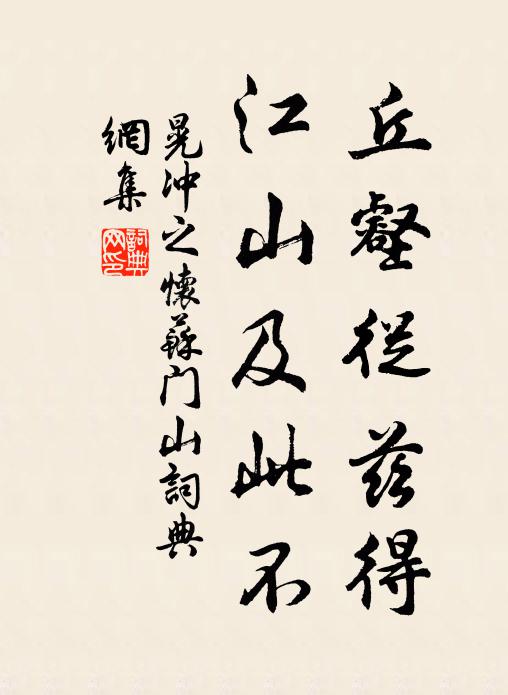 丘壑從茲得
江山及此不
晁沖之懷蘇門山詞典
網集
詞典
网印